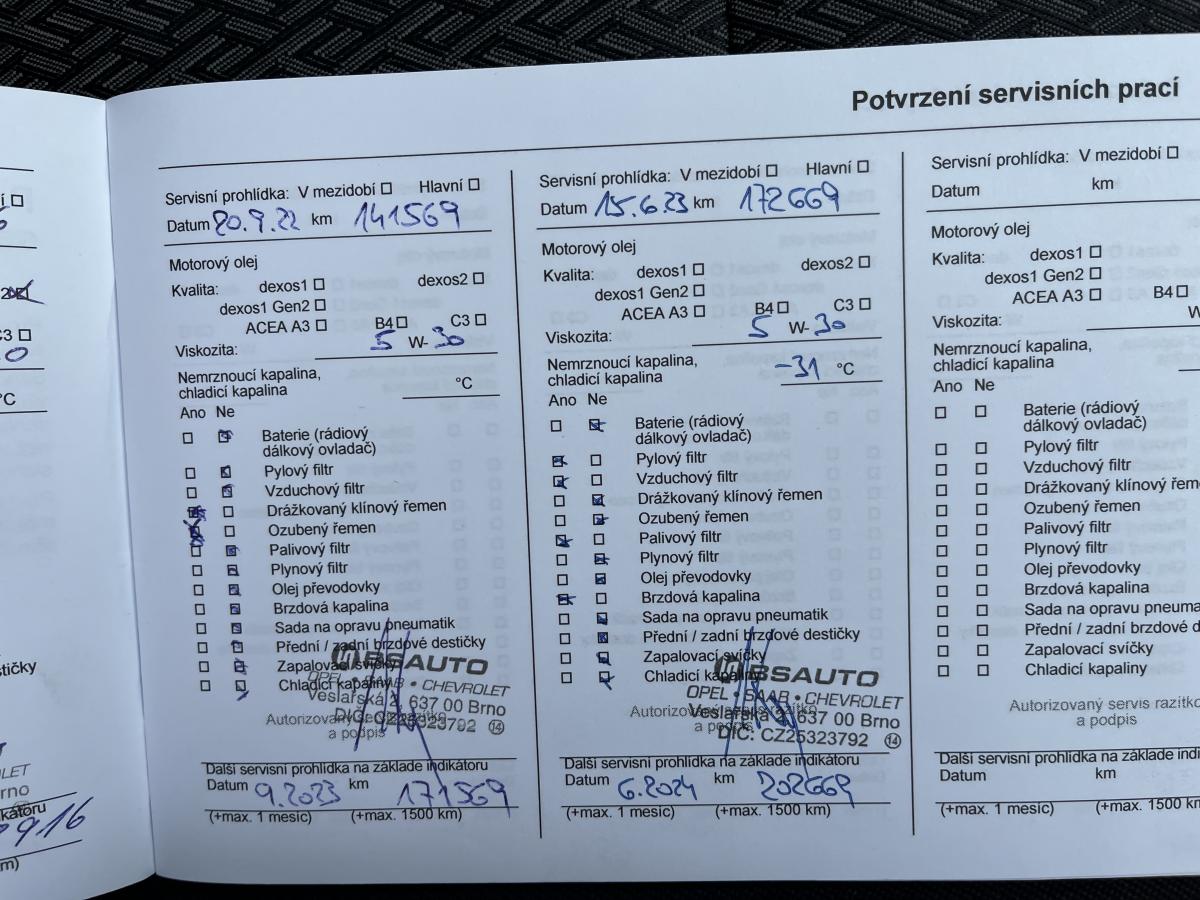 Potvrzení servisních prací
Servisní prohlídka: V mezidobí ☐ Hlavní ☐
Datum 20.9.22 km 141569
Motorový olej
Kvalita: dexos1 ☐ dexos2 ☐
dexos1 Gen2 ☐
ACEA A3 ☐ B4 ☐ C3 ☐
Viskozita: 5 W-30
Nemrznoucí kapalina,
chladicí kapalina °C
Ano Ne
☐ ☒ Baterie (rádiový
dálkový ovladač)
☐ ☒ Pylový filtr
☐ ☒ Vzduchový filtr
☒ ☐ Drážkovaný klínový řemen
☒ ☐ Ozubený řemen
☐ ☒ Palivový filtr
☐ ☒ Plynový filtr
☐ ☒ Olej převodovky
☐ ☒ Brzdová kapalina
☐ ☒ Sada na opravu pneumatik
☐ ☒ Přední / zadní brzdové destičky
☐ ☒ Zapalovací svíčky
☐ ☒ Chladicí kapaliny
BSAUTO
OPEL • SAAB • CHEVROLET
Veslařská 637 00 Brno
DIČ: CZ25323792 14
Autorizovaný servis razítko
a podpis
Další servisní prohlídka na základe indikátoru
Datum 9.2023 km 171569
(+max. 1 mesíc) (+max. 1500 km)
Servisní prohlídka: V mezidobí ☐ Hlavní ☐
Datum 15.6.23 km 172669
Motorový olej
Kvalita: dexos1 ☐ dexos2 ☐
dexos1 Gen2 ☐
ACEA A3 ☐ B4 ☐ C3 ☐
Viskozita: 5 W-30
Nemrznoucí kapalina,
chladicí kapalina -31 °C
Ano Ne
☐ ☒ Baterie (rádiový
dálkový ovladač)
☒ ☐ Pylový filtr
☒ ☐ Vzduchový filtr
☐ ☒ Drážkovaný klínový řemen
☐ ☒ Ozubený řemen
☒ ☐ Palivový filtr
☐ ☒ Plynový filtr
☐ ☒ Olej převodovky
☒ ☐ Brzdová kapalina
☐ ☒ Sada na opravu pneumatik
☐ ☒ Přední / zadní brzdové destičky
☐ ☒ Zapalovací svíčky
☐ ☒ Chladicí kapaliny
BSAUTO
OPEL • SAAB • CHEVROLET
Veslařská 637 00 Brno
DIČ: CZ25323792 14
Autorizovaný servis razítko
a podpis
Další servisní prohlídka na základe indikátoru
Datum 6.2024 km 202669
(+max. 1 mesíc) (+max. 1500 km)
Servisní prohlídka: V mezidobí ☐
Datum km
Motorový olej
Kvalita: dexos1 ☐
dexos1 Gen2 ☐
ACEA A3 ☐ B4 ☐
Viskozita: W
Nemrznoucí kapalina,
chladicí kapalina
Ano Ne
☐ ☐ Baterie (rádiový
dálkový ovladač)
☐ ☐ Pylový filtr
☐ ☐ Vzduchový filtr
☐ ☐ Drážkovaný klínový řeme
☐ ☐ Ozubený řemen
☐ ☐ Palivový filtr
☐ ☐ Plynový filtr
☐ ☐ Olej převodovky
☐ ☐ Brzdová kapalina
☐ ☐ Sada na opravu pneuma
☐ ☐ Přední / zadní brzdové d
☐ ☐ Zapalovací svíčky
☐ ☐ Chladicí kapaliny
Autorizovaný servis razítko
a podpis
Další servisní prohlídka na základe indikátoru
Datum km
(+max. 1 mesíc) (+max. 1500 km